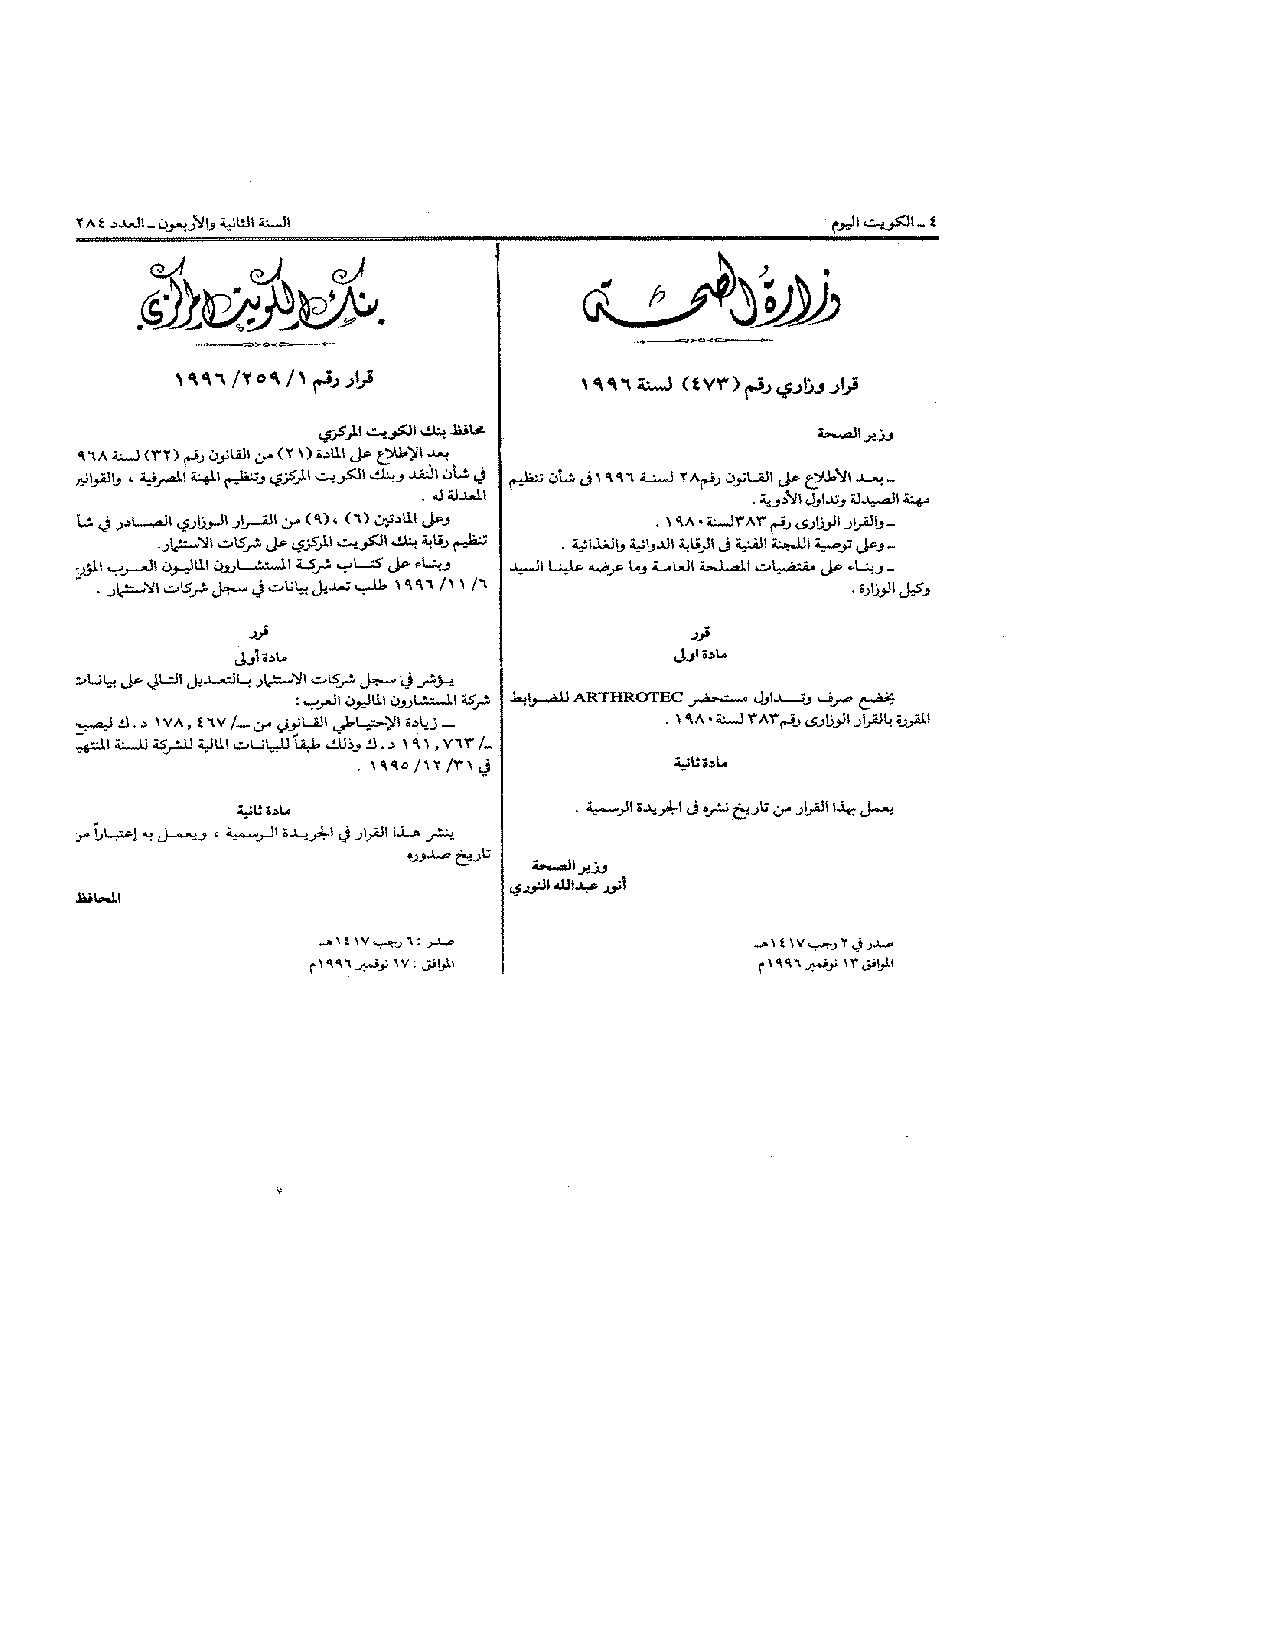 ٤ ـ الكويت اليوم
السنة الثانية والأربعون ـ العدد ٢٨٤
وزارة الصحة
قرار وزاري رقم (٤٧٣) لسنة ١٩٩٦
وزير الصحة
ـ بعد الأطلاع على القانون رقم ٢٨ لسنة ١٩٩٦ فى شأن تنظيم
مهنة الصيدلة وتداول الأدوية .
ـ والقرار الوزارى رقم ٣٨٣ لسنة ١٩٨٠ .
ـ وعلى توصية اللجنة الفنية فى الرقابة الدوائية والغذائية .
ـ وبناء على مقتضيات المصلحة العامة وما عرضه علينا السيد
وكيل الوزارة .
قرر
مادة اولى
يخضع صرف وتداول مستحضر ARTHROTEC للضوابط
المقررة بالقرار الوزارى رقم ٣٨٣ لسنة ١٩٨٠ .
مادة ثانية
يعمل بهذا القرار من تاريخ نشره فى الجريدة الرسمية .
وزير الصحة
أنور عبدالله النوري
صدر في ٢ رجب ١٤١٧هـ
الموافق ١٣ نوفمبر ١٩٩٦م
بنك الكويت المركزي
قرار رقم ١/ ٢٥٩/ ١٩٩٦
محافظ بنك الكويت المركزي
بعد الإطلاع على المادة (٢١) من القانون رقم (٣٢) لسنة ٩٦٨
في شأن النقد وبنك الكويت المركزي وتنظيم المهنة المصرفية ، والقوانير
المعدلة له .
وعلى المادتين (٦) ، (٩) من القرار الوزاري الصادر في شأ
تنظيم رقابة بنك الكويت المركزي على شركات الاستثمار.
وبناء على كتاب شركة المستشارون الماليون العرب المؤر
٦/ ١١/ ١٩٩٦ طلب تعديل بيانات في سجل شركات الاستثمار .
قرر
مادة أولى
يؤشر في سجل شركات الاستثمار بالتعديل التالي على بيانات
شركة المستشارون الماليون العرب :
ـ زيادة الإحتياطي القانوني من ـ/ ١٧٨,٤٦٧ د.ك ليصب
ـ/ ١٩١,٧٦٣ د.ك وذلك طبقاً للبيانات المالية للشركة للسنة المنتهي
في ٣١/ ١٢/ ١٩٩٥ .
مادة ثانية
ينشر هذا القرار في الجريدة الرسمية ، ويعمل به إعتباراً من
تاريخ صدوره
المحافظ
صدر : ٦ رجب ١٤١٧هـ
الموافق : ١٧ نوفمبر ١٩٩٦م